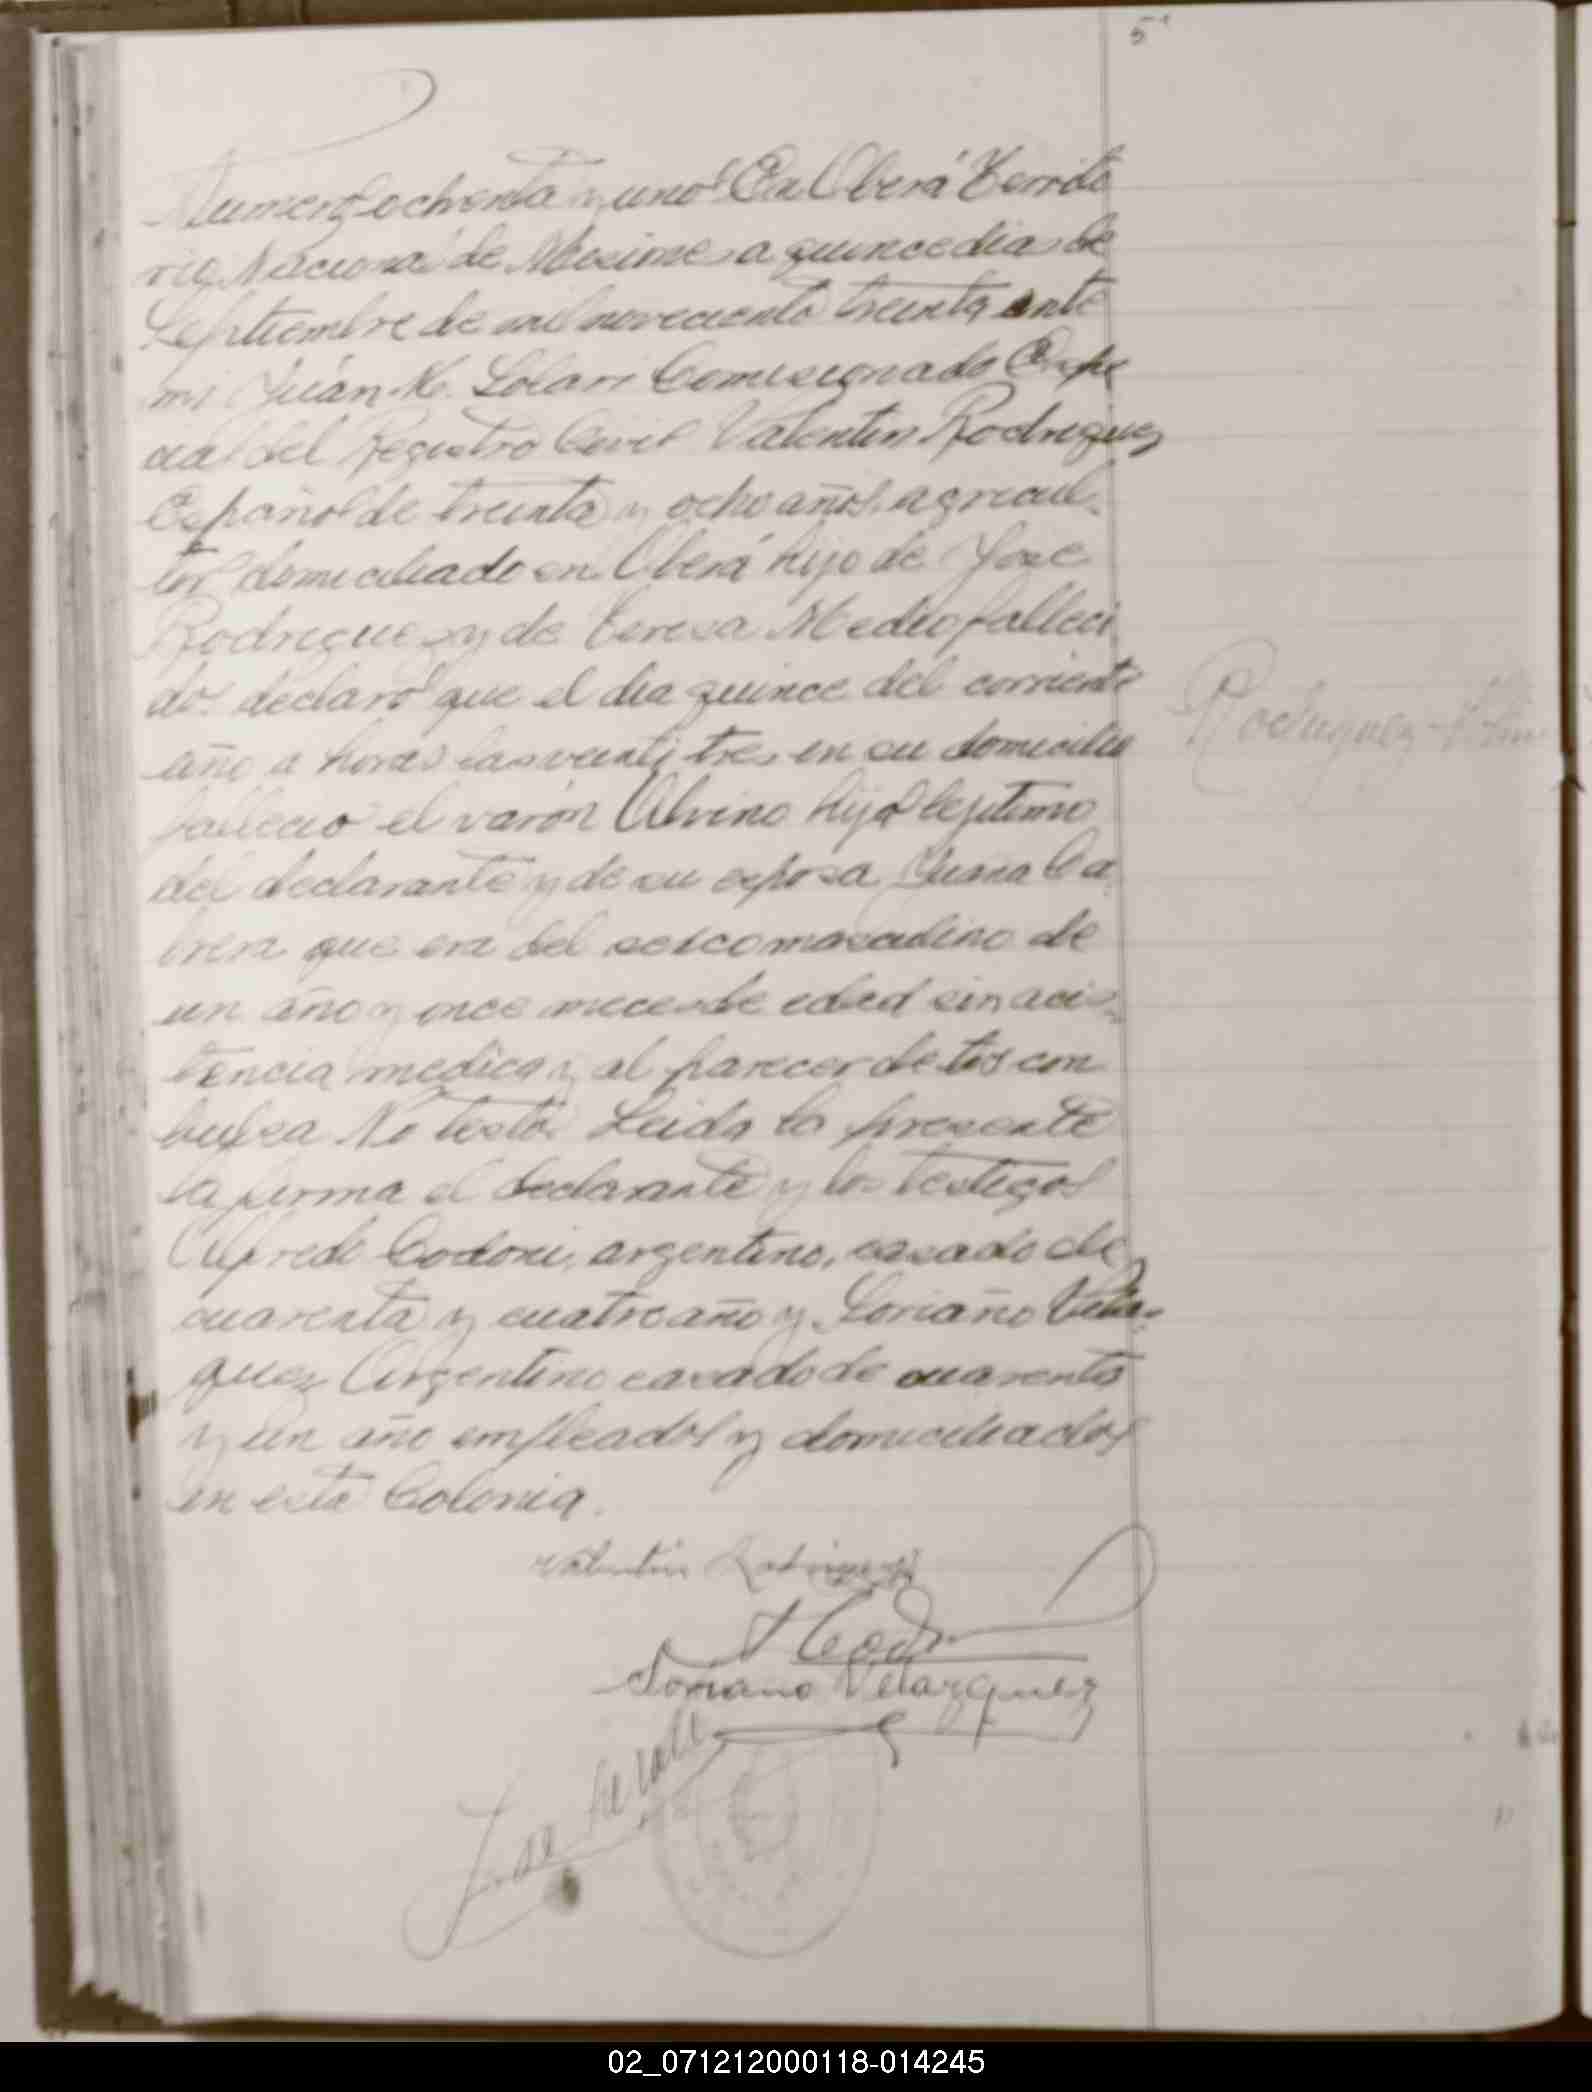 5
Numero ochenta y uno En Oberá Territo
rio Nacional de Misiones a quince dias de
Septiembre de mil noveciento treinta ante
mi Juán M. Solari Comisionado Espe
cial del Registro Civil Valentin Rodriguez
Español de treinta y ocho años, agricul-
tor domiciliado en Oberá hijo de José
Rodriguez y de Teresa Medio falleci
dos declaró que el dia quince del corriente
año a horas las veinti tres en su domicilio
fallecio el varón Alvino hijo lejitimo
del declarante y de su esposa Juana Ca
brera que era del secso masculino de
un año y once meces de edad sin acis-
tencia medica y al parecer de tos con
bulsa No testó. Leida la presente
la firma el declarante y los testigos
Alfredo Codoni, argentino, casado de
cuarenta y cuatro año y Soriaño Velas-
quez Argentino casado de cuarenta
y un año empleados y domiciliados
en esta Colonia.
Rodriguez
Valentin Rodriguez
Soriano Velazquez
02_071212000118-014245